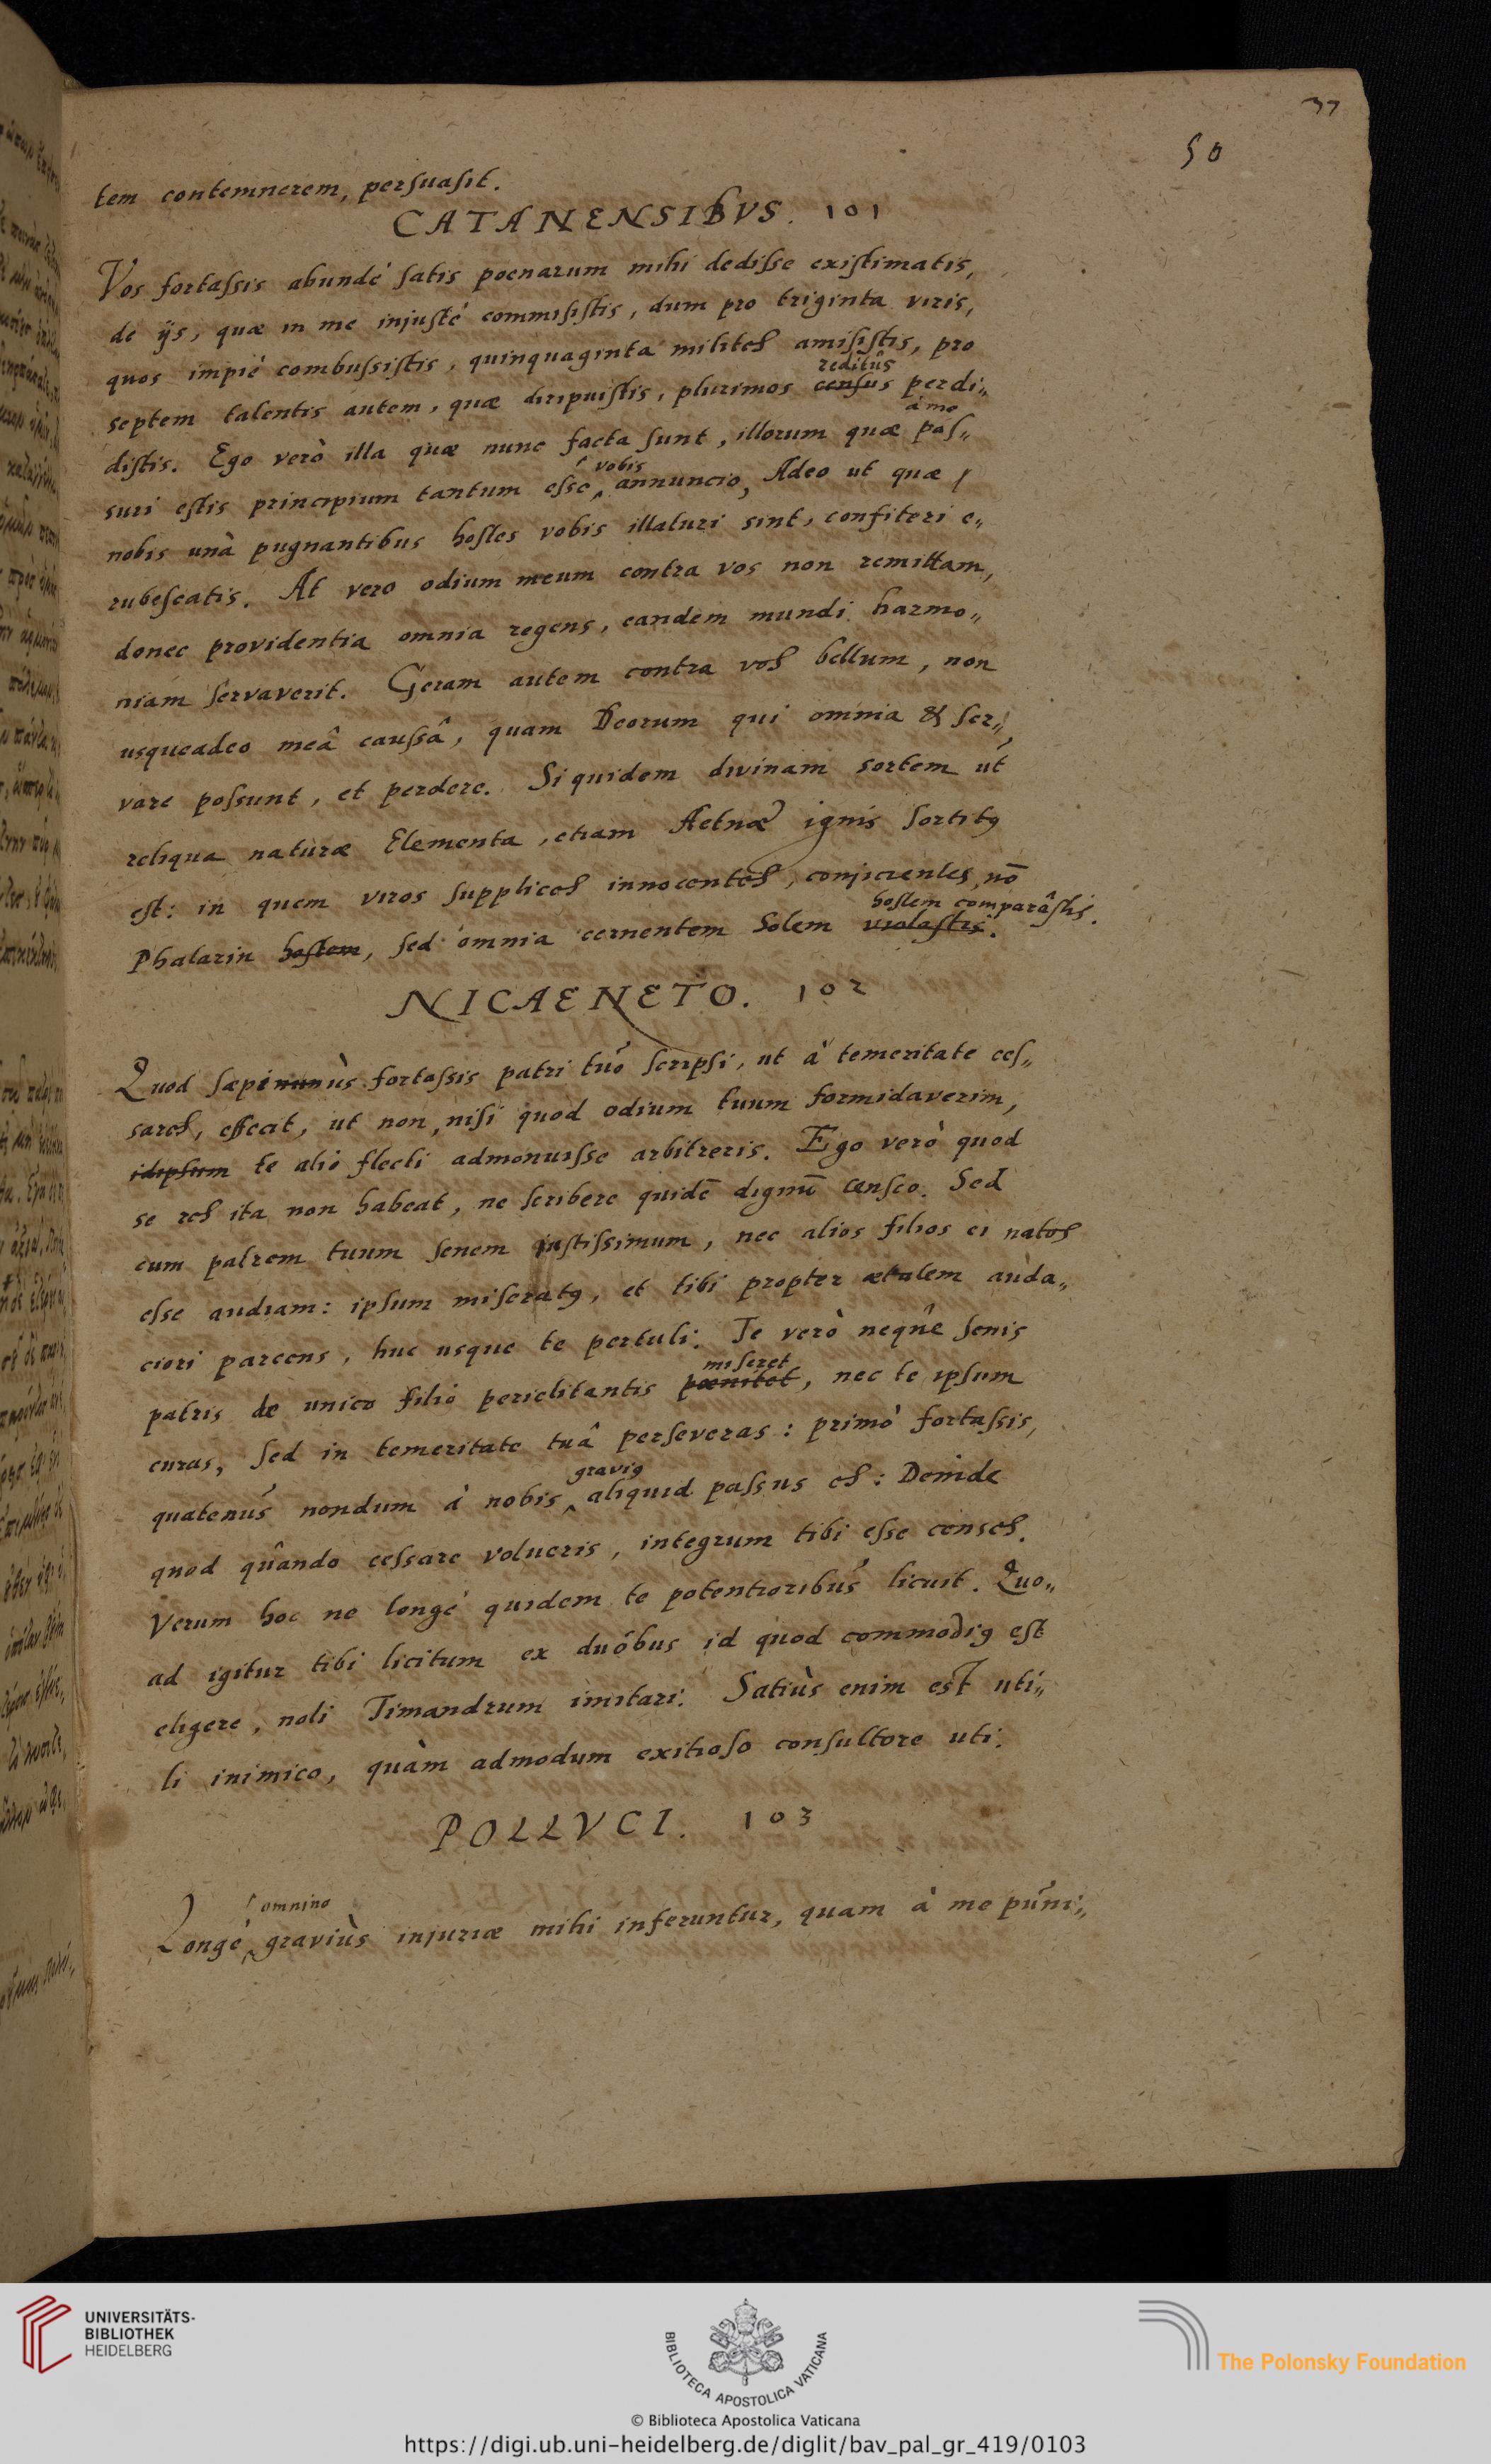 37
50
tem contemnerem, persuasit.
CATANENSIBVS. 101
Vos fortassis abundè satis poenarum mihi dedisse existimatis,
de ijs, quæ in me injustè commisistis, dum pro triginta viris,
quos impiè combussistis, quinquaginta milites amisistis, pro
reditûs
septem talentis autem, quæ diripuistis, plurimos census perdi„
à me
distis. Ego verò illa quæ nunc facta sunt, illorum quæ pas„
vobis
suri estis principium tantum esse annuncio, Adeo ut quæ
nobis unà pugnantibus hostes vobis illaturi sint, confiteri e„
rubescatis. At vero odium meum contra vos non remittam,
donec providentia omnia regens, eandem mundi harmo„
niam servaverit. Geram autem contra vos bellum, non
usqueadeo meâ caussâ, quam Deorum qui omnia & ser„
vare possunt, et perdere. Siquidem divinam sortem ut
reliqua naturæ Elementa, etiam Aetnæ ignis sortitus
est: in quem viros supplices innocentes, conjicientes, nō
hostem comparâstis.
Phalarin hostem, sed omnia cernentem Solem violastis.
NICAENETO. 102
Quod sæpi ùs fortassis patri tuo scripsi, ut à temeritate ces„
sares, effecit, ut non, nisi quod odium tuum formidaverim,
idipsum te aliò flecti admonuisse arbitreris. Ego verò quod
se res ita non habeat, ne scribere quidē dignū censeo. Sed
cum patrem tuum senem justissimum, nec alios filios ei natos
esse audiam: ipsum miseratus, et tibi propter ætatem auda„
ciori parcens, huc usque te pertuli. Te verò neque senis
miseret
patris de unico filio periclitantis pœnitet, nec te ipsum
curas, sed in temeritate tuâ perseveras: primò fortassis,
gravius
quatenus nondum à nobis aliquid passus es: Deinde
quod quando cessare volueris, integrum tibi esse censes.
Verum hoc ne longè quidem te potentioribus licuit. Quo„
ad igitur tibi licitum ex duobus id quod commodius est
eligere, noli Timandrum imitari. Satiùs enim est uti„
li inimico, quàm admodum exitioso consultore uti.
POLLVCI. 103
omnino
Longè graviùs injuriæ mihi inferuntur, quam à me puni„
UNIVERSITÄTS-
BIBLIOTHEK
HEIDELBERG
BIBLIOTECA APOSTOLICA VATICANA
The Polonsky Foundation
© Biblioteca Apostolica Vaticana
https://digi.ub.uni-heidelberg.de/diglit/bav_pal_gr_419/0103